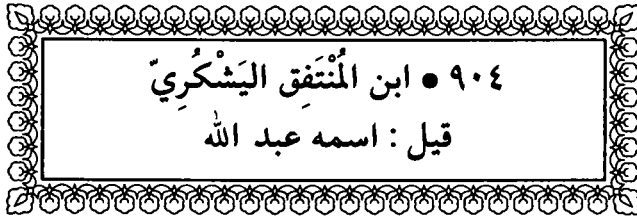 ٩٠٤ • ابن المُنْتَفِق اليَشْكُرِيّ
قيل : اسمه عبد الله